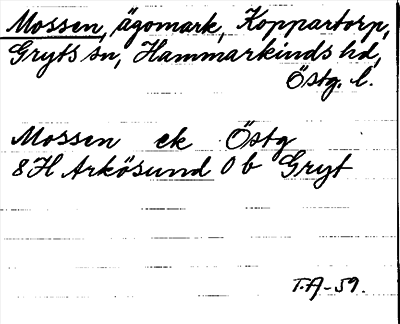 Mossen, ägomark, Koppartorp,
Gryts sn, Hammarkinds hd,
Östg. l.
Mossen ek Östg
8H Arkösund 0b Gryt
T.A-59.